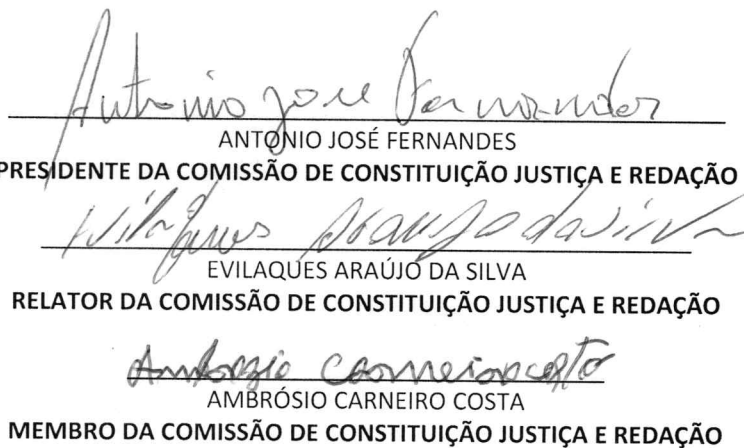 Antonio José Fernandes
ANTONIO JOSÉ FERNANDES
PRESIDENTE DA COMISSÃO DE CONSTITUIÇÃO JUSTIÇA E REDAÇÃO
Araujo da Silva
EVILAQUES ARAÚJO DA SILVA
RELATOR DA COMISSÃO DE CONSTITUIÇÃO JUSTIÇA E REDAÇÃO
Ambrozio Carneiro costa
AMBRÓSIO CARNEIRO COSTA
MEMBRO DA COMISSÃO DE CONSTITUIÇÃO JUSTIÇA E REDAÇÃO